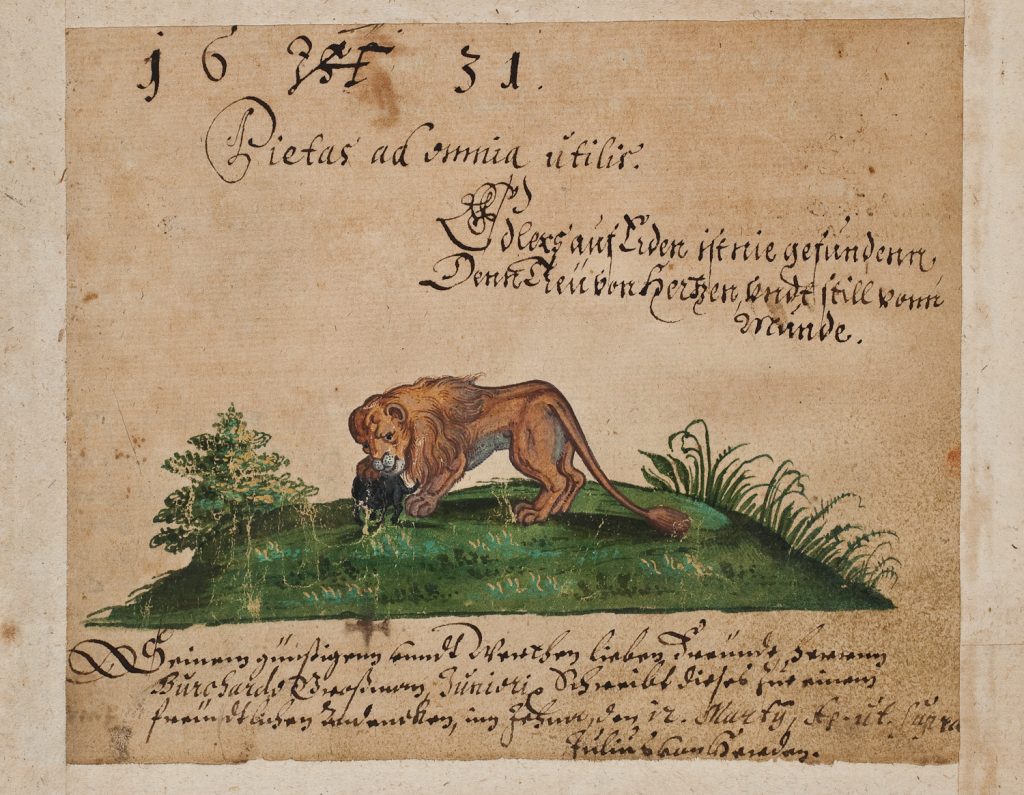 16 31.
Pietas ad omnia utilis.
Edlers auf Erden ist nie gefundenn,
Denn Treü von Hertzen, vndt still vonn
Munde.
Seinem günstigenn vnndt Werthen lieben Freünde, Herrnn
Burchardo Großman, Juniori, Schreibt dieses zue einem
freündtlichen Andencken, inn Jehna, den 12. Marty, Ao. ut. supra
Julius von